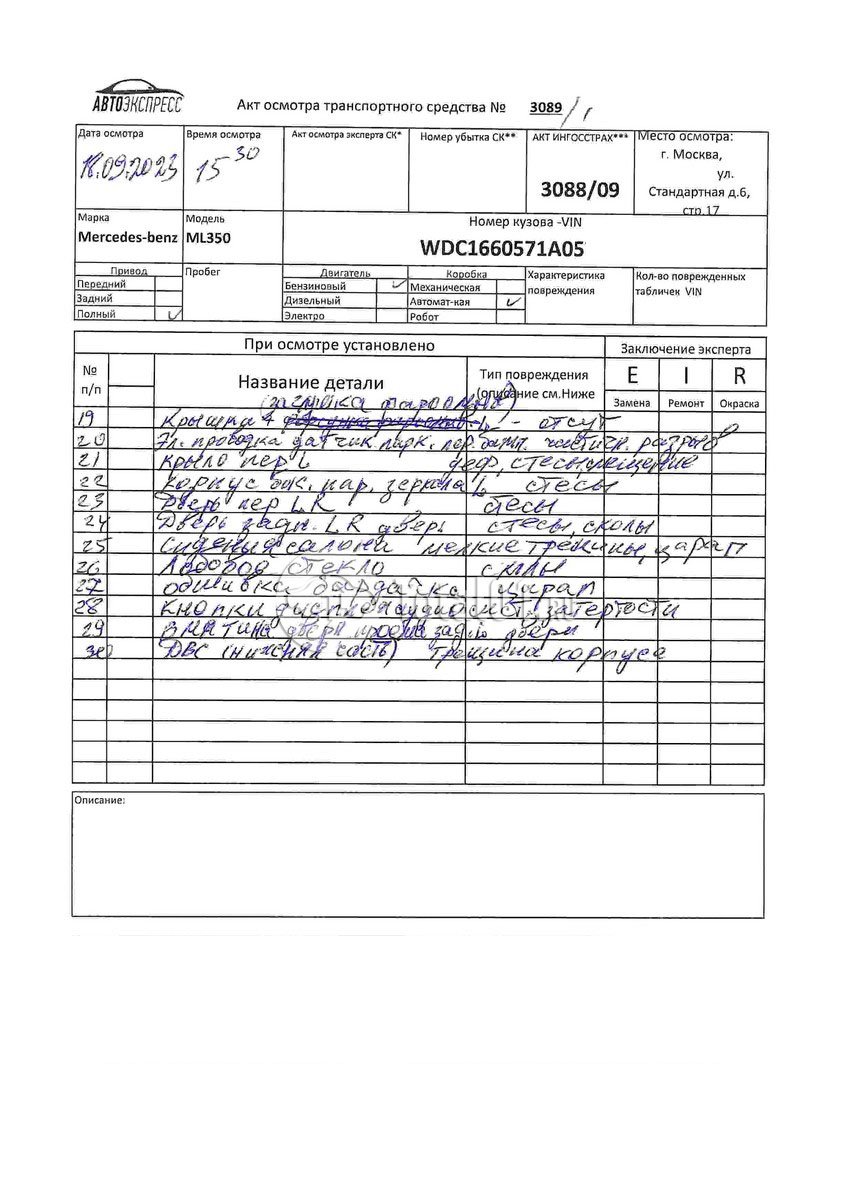 АВТОЭКСПРЕСС
Акт осмотра транспортного средства № 3089/1
Дата осмотра Время осмотра Акт осмотра эксперта СК* Номер убытка СК** АКТ ИНГОССТРАХ*** Место осмотра:
18.09.2023 15 30 3088/09 г. Москва,
ул.
Стандартная д.6,
стр.17
Марка Модель Номер кузова -VIN
Mercedes-benz ML350 WDC1660571A05
Привод Пробег Двигатель Коробка Характеристика повреждения Кол-во поврежденных табличек VIN
Передний Бензиновый ✓ Механическая
Задний Дизельный Автомат-кая ✓
Полный ✓ Электро Робот
При осмотре установлено Заключение эксперта
№ п/п Название детали Тип повреждения (описание см.Ниже E I R
Замена Ремонт Окраска
19 Крышка L - отсут
20 Эл. проводка датчик. парк. пер. частичн. разрыв
21 Крыло пер L деф, стесы,
22 Корпус бок. нар. зеркала L стесы
23 Дверь пер L R стесы
24 Дверь задн. L R дверь стесы, сколы
25 Сидения салона мелкие трещины, царап
26 Лобовое стекло сколы
27 обшивка бардачка царап
28 Кнопки затертости
29 Вматина двери проема задн двери
30 ДВС (нижняя часть) трещина корпуса
Описание: